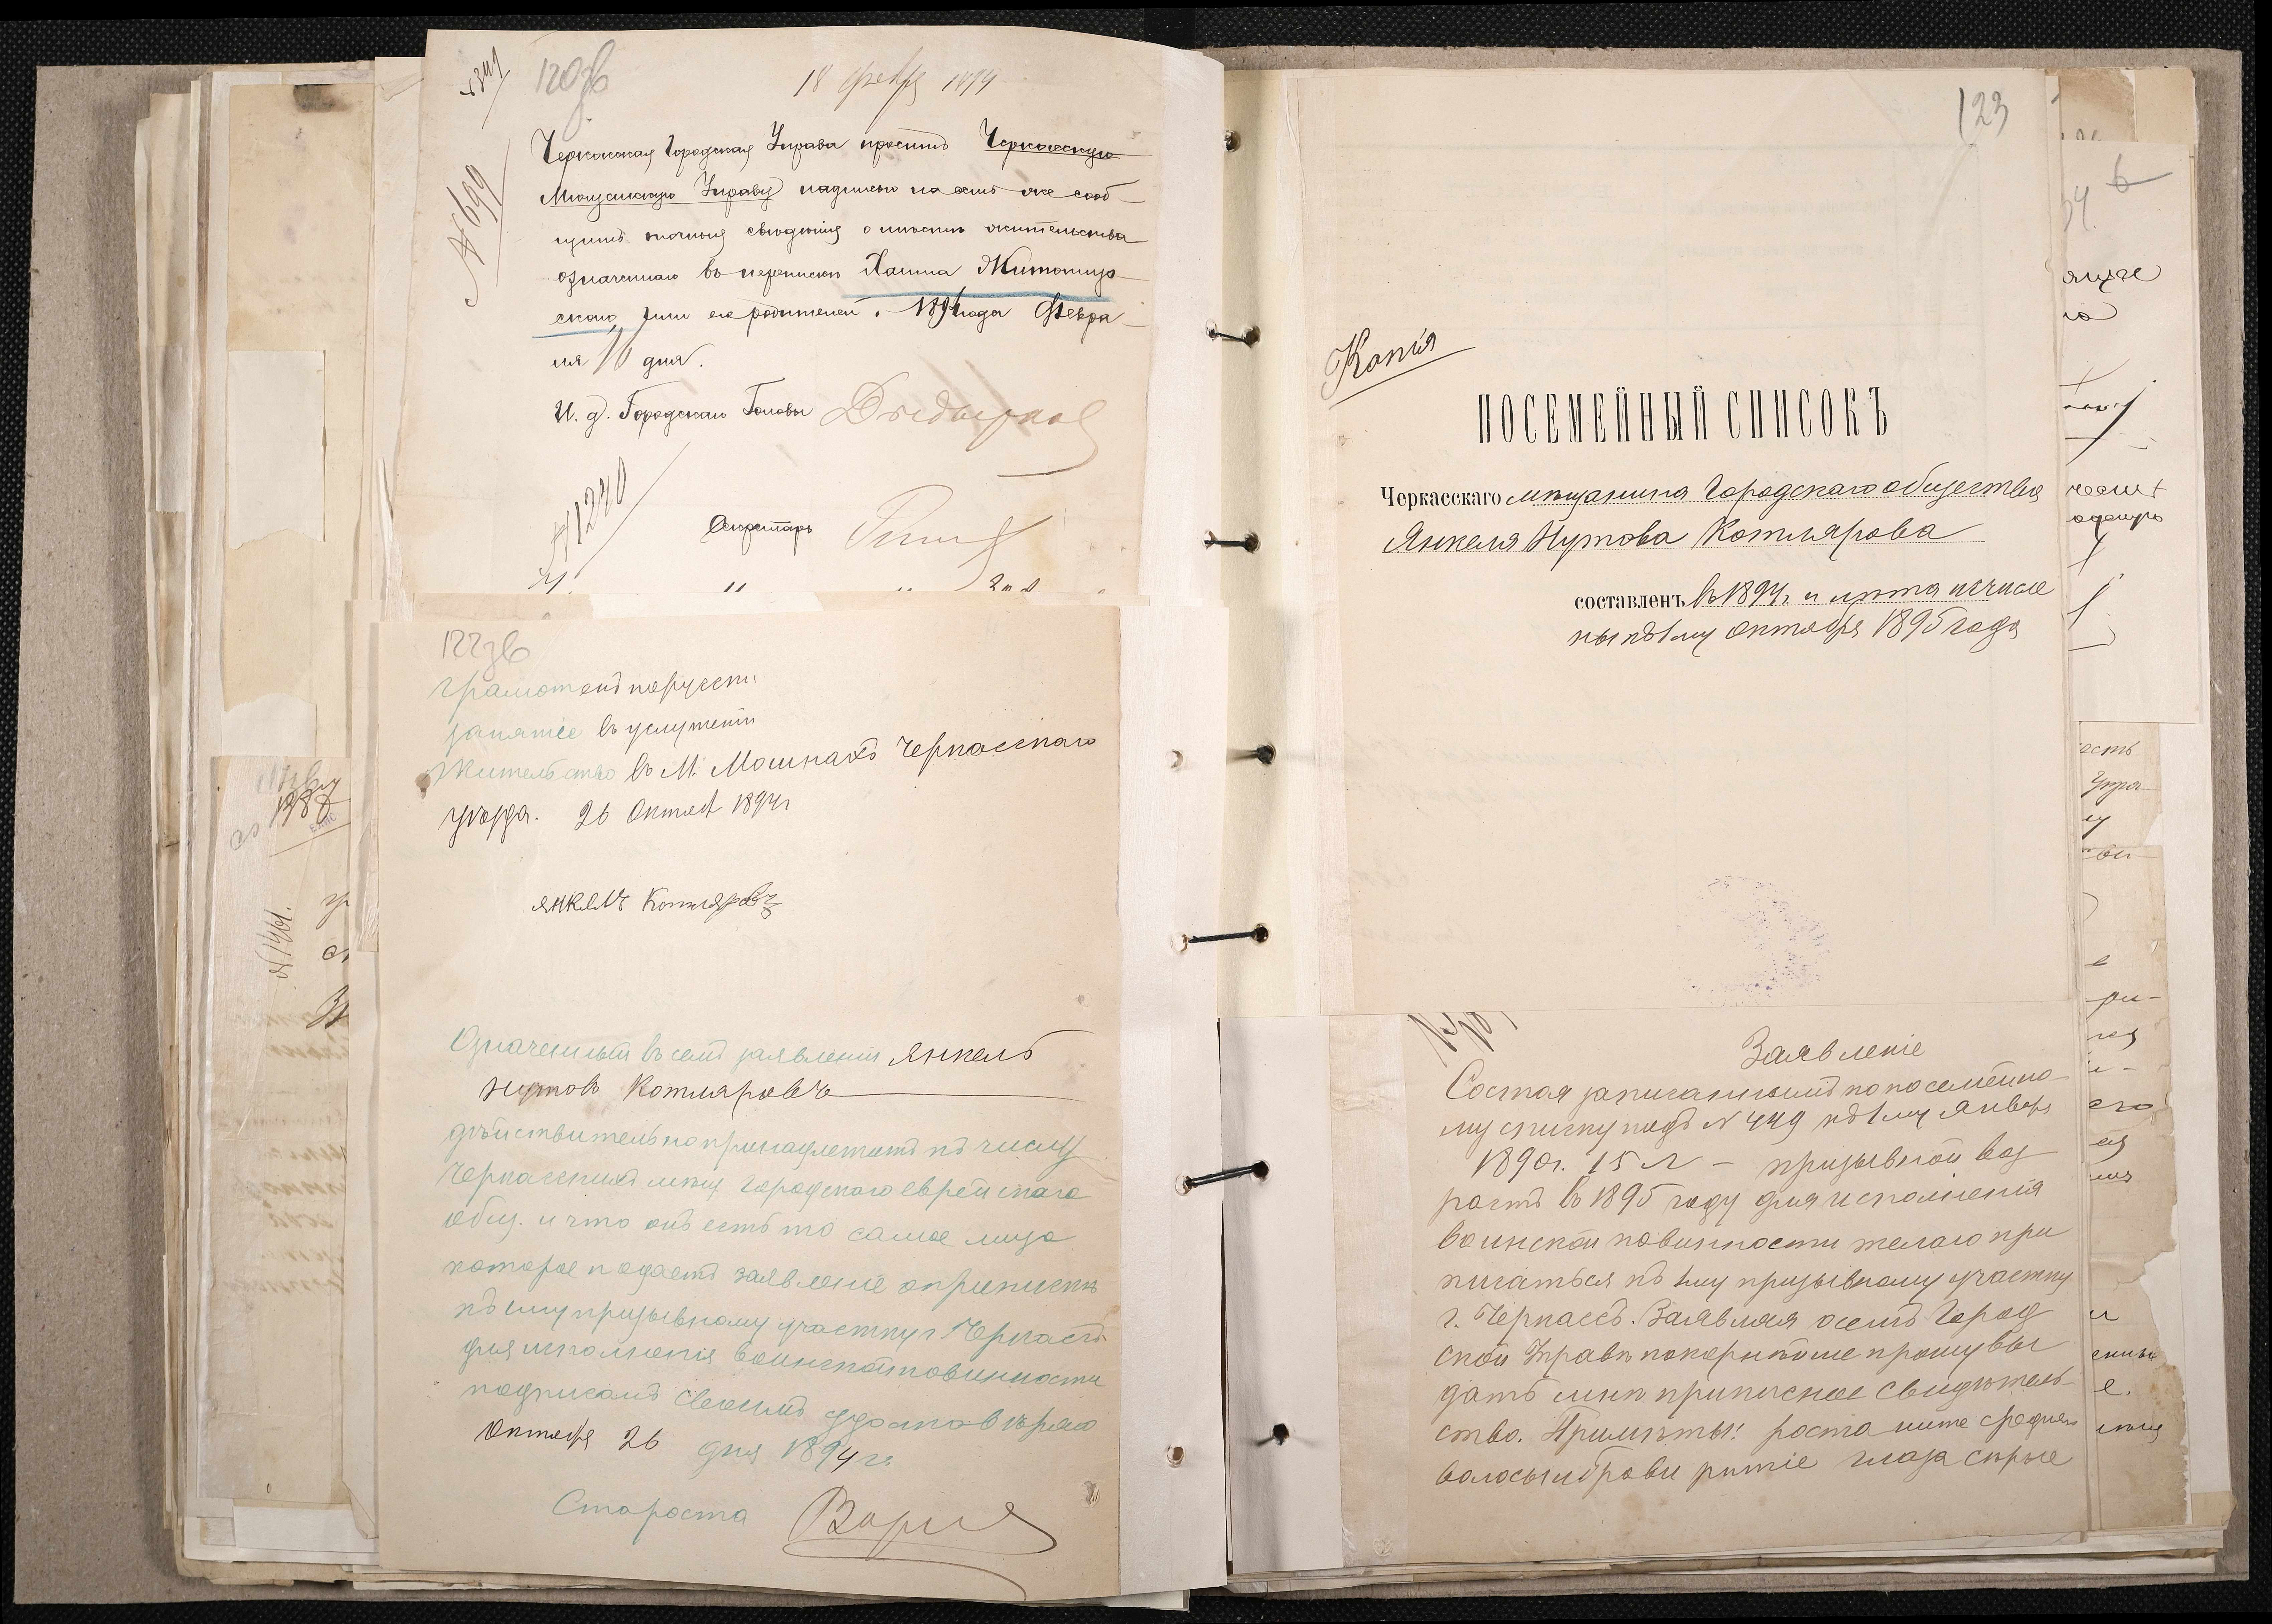 120зв
18 февр 1894
№ 699
Черкасская Городская Управа проситъ Черкасскую
Мещанскую Управу надписью на семъ же сооб-
щить точныя сведения о месте жительства
означеннаго въ переписке Хаима Житомир-
скаго или его родителей. 1894 года Февра-
ля 10 дня.
И. д. Городскаго Головы
№ 1240
Секретарь
122зв
Грамотенъ порусски
занятіе въ услуженіи
Жительство въ М. Мошнахъ Черкасскаго
уѣзда. 26 Октяб 1894 г
Янкель Котляровъ
Означенный въ семъ заявленіи Янкель
Нутовъ Котляровъ
дѣйствительно принадлежитъ къ числу
Черкасскихъ мещ Городскаго еврейскаго
общ. и что онъ есть то самое лицо
которое подаетъ заявленіе о припискѣ
къ 1му призывному участку г. Черкассъ
для исполненія воинской повинности
подписомъ своимъ удостовѣряю
Октября 26 дня 1894 г.
Староста
№ 1461.
123
Копія
ПОСЕМЕЙНЫЙ СПИСОКЪ
Черкасскаго мѣщанина Городскаго общества
Янкеля Нутова Котлярова
составленъ въ 1894 г. и лѣта исчисле
ны къ 1му Октября 1895 года
Заявленіе
Состоя записаннымъ по посемейно-
му списку подъ N 449 къ 1му Январ
1890 г. 15 л - призывной воз
растъ въ 1895 году для исполненія
воинской повинности желаю при
писаться къ 1му призывному участку
г. Черкассъ. Заявляя о семъ Город
ской Управѣ покорнѣйше прошу вы
дать мнѣ приписное свидѣтель-
ство. Примѣты: роста ниже средняго
волосы и брови рыжіе глаза сѣрые